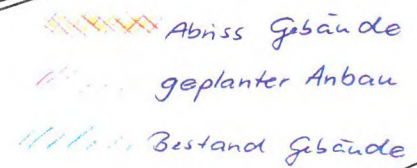 Abriss Gebäude
geplanter Anbau
Bestand Gebäude